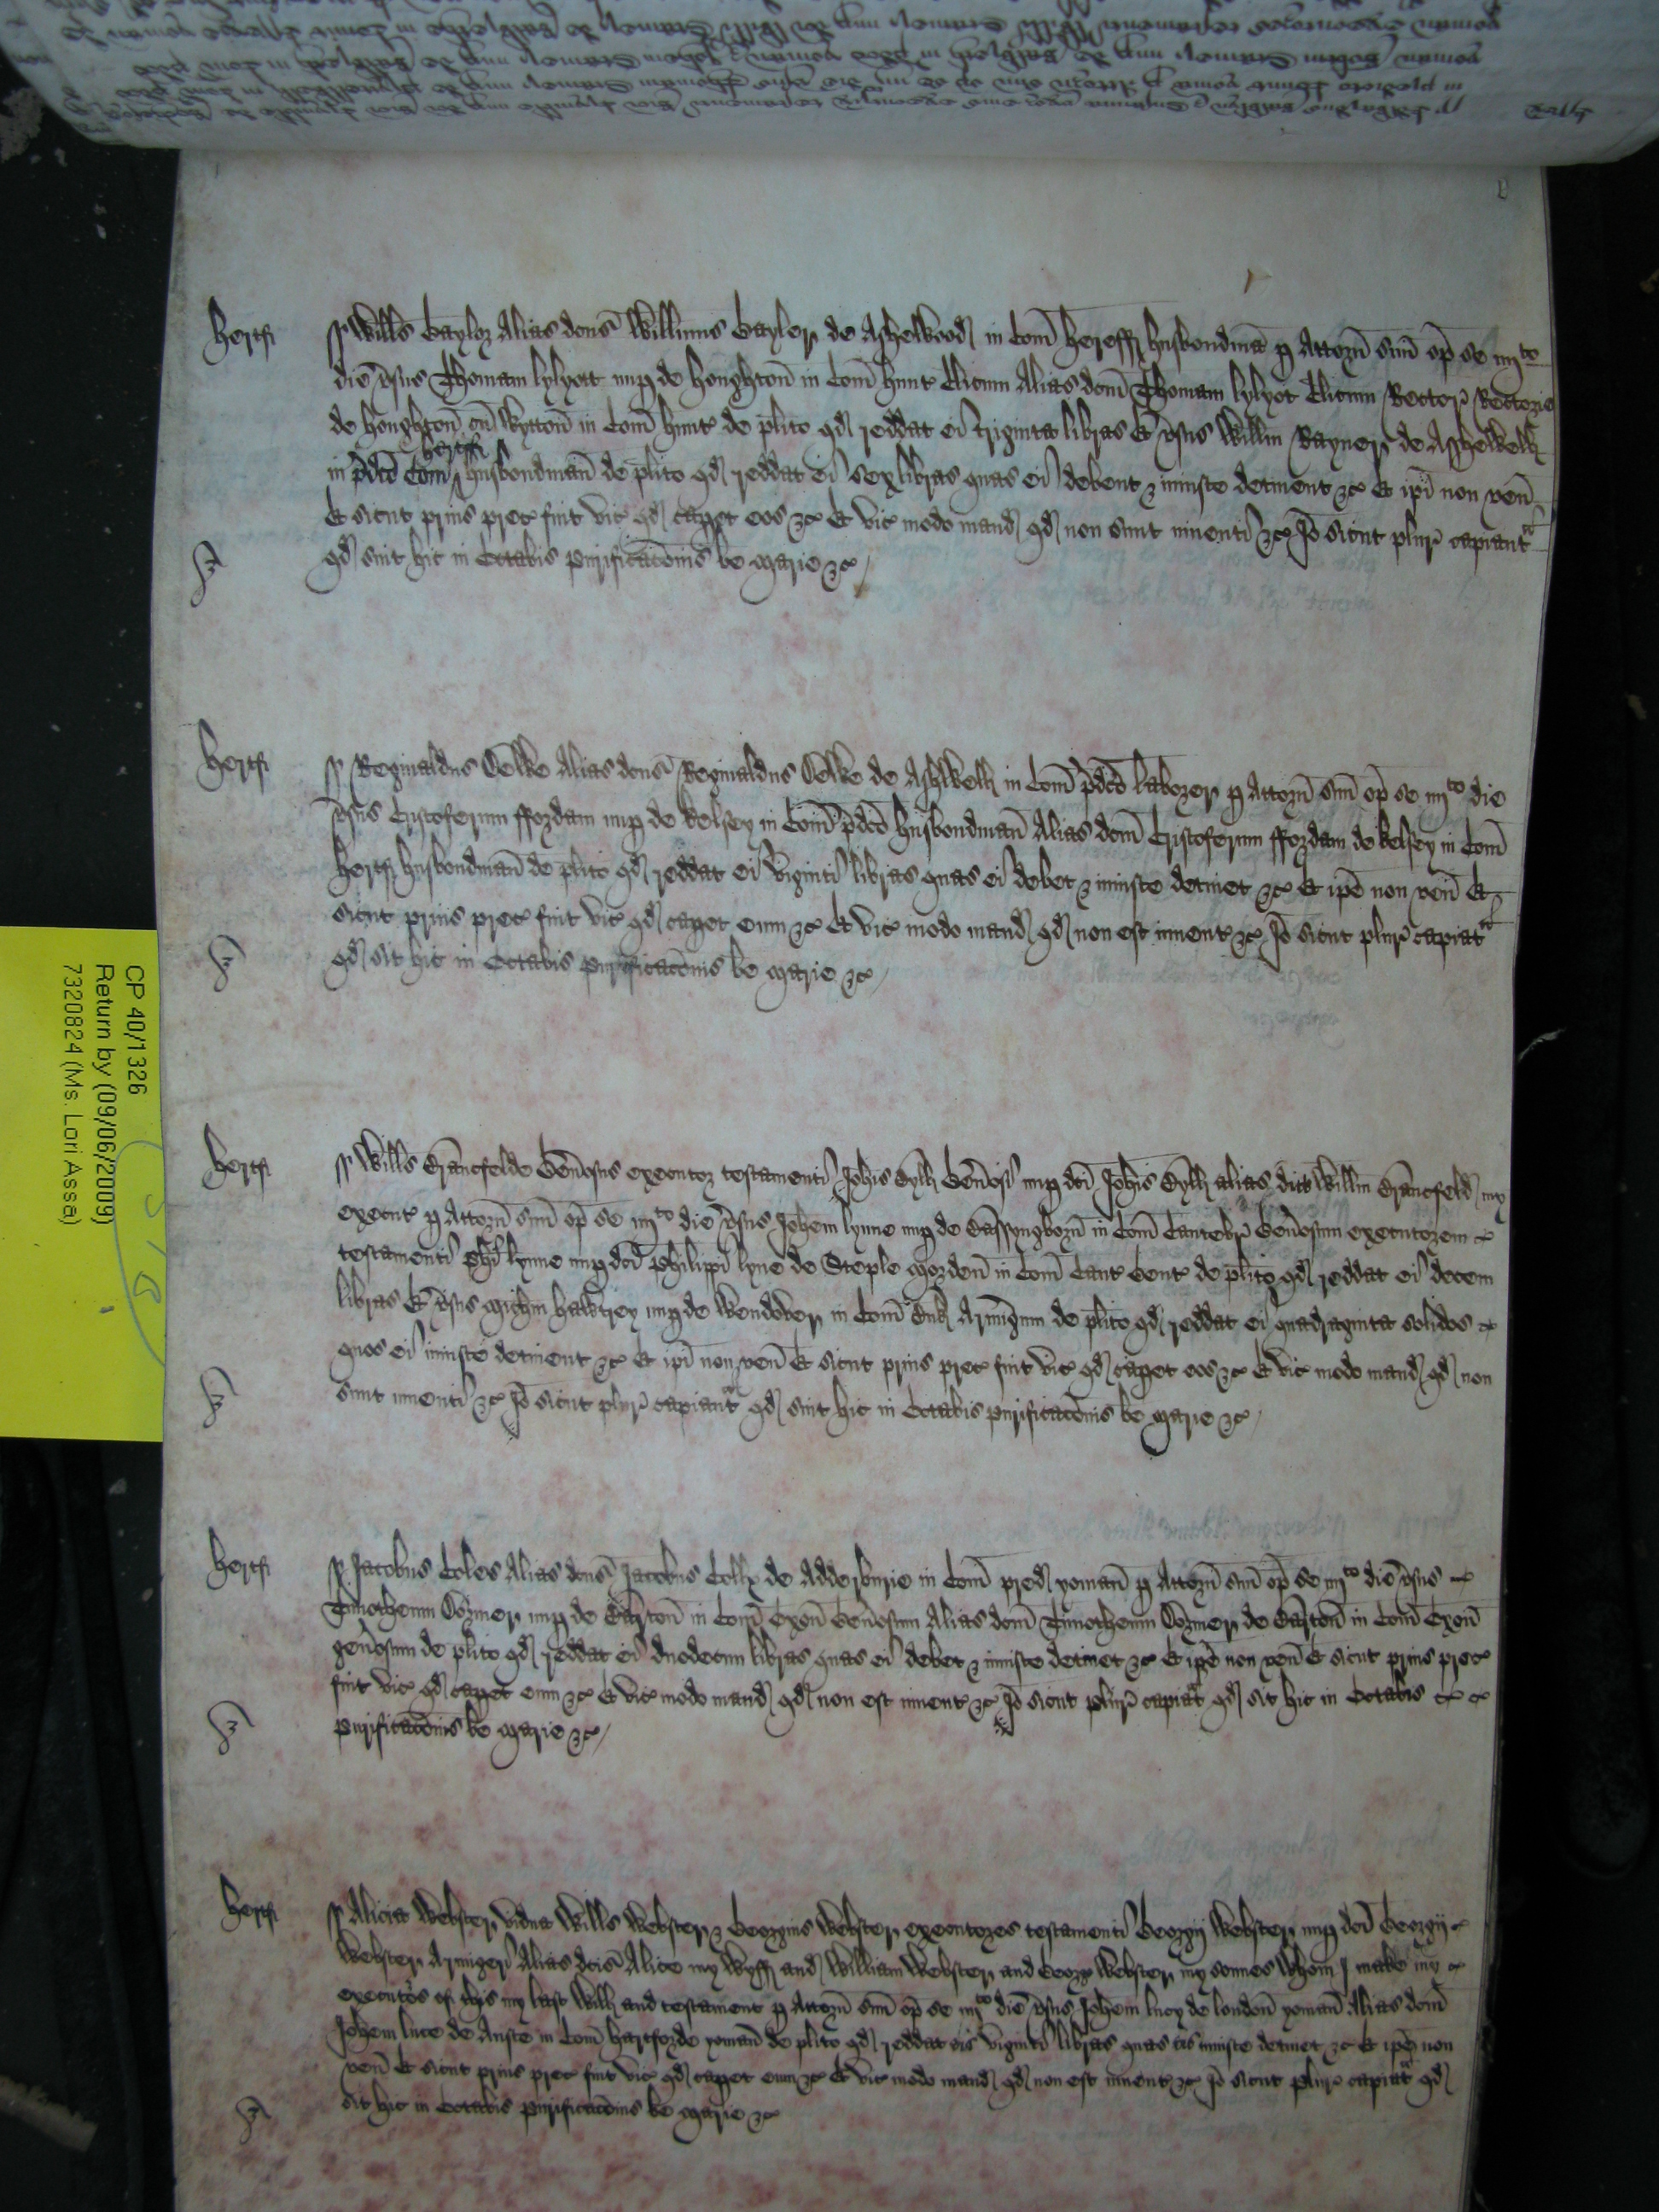 Hertf
sr Willus Gayler Alias dcus Willimus Gayler de Asshelwood in Com Hertff husbondma p Attorn suu op se iiijto
die vsus Thomam lylyott nup de Houghton in Com Hunt Clicum Alias dcm Thomam lylyot Clicum Rector Rectorie
de Houghton cu Wytton in Com Hunt de plito qd reddat ei triginta libras Et vsus Willm Rayner de Asshewell
Hertff
in pdco Com husbondman de plito qd reddat ei sex libras quas ei debent & iniuste detinent &c Et ipi non ven
Et sicut prius prec fuit vic qd capet eos &c Et vic modo mand qd non sunt inuenti &c Io sicut plur capiantr
qd sint hic in Octabis Purificacois be Marie &c
Hertf
sr Reginaldus Oelke Alias dcus Reginaldus Oelke de Ashwell in Com pdco laborer p Attorn suu op se iiijto die
vsus Cristoferum fordam nup de Kelsey in Com pdco husbondman Alias dcm Cristoferum fordam de kelsey in Com
Hertf husbondman de plito qd reddat ei viginti libras quas ei debet & iniuste detinet &c Et ipe non ven Et
sicut prius prec fuit vic qd capet eum &c Et vic modo mand qd non est inuent &c Io sicut plur capiatr
qd sit hic in Octabis Purificacois be Marie &c
Hertf
sr Willus Brancfelde Genosus executor testamenti Johis Byll Genosi nup dci Johis Byll alias dict Willm Brancfeld my
execut p Attorn suu op se iiijto die vsus Johem lynne nup de Bassyngborn in Com Cantebr Genosum executorem
testamenti Phi lynne nup dci Philippi lyne de Steple Mordon in Com Cant Gent de plito qd reddat ei decem
libras Et vsus Michm Hawtrey nup de Wendover in Com Buk Armigum de plito qd reddat ei quadraginta solidos
quos ei iniuste detinent &c Et ipi non ven Et sicut prius prec fuit vic qd capet eos &c Et vic modo mand qd non
sunt inuenti &c Io sicut plur capiantr qd sint hic in Octabis Purificacois be Marie &c
Hertf
sr Jacobus Coles Alias dcus Jacobus Colls de Adderburie in Com pred yoman p Attorn suu op se iiijto die vsus
Timotheum Oozmer nup de Barton in Com Exon Genosum Alias dcm Timotheum Oozmer de Barton in Com Exon
genosum de plito qd reddat ei duodecim libras quas ei debet & iniuste detinet &c Et ipe non ven Et sicut prius prec
fuit vic qd capet eum &c Et vic modo mand qd non est inuent &c Io sicut plur capiatr qd sit hic in Octabis
Purificacois be Marie &c
Hertf
sr Alicia Webster vidua Willus Webster & Georgius Webster executores testamenti Georgij Webster nup dci Georgij
Webster Armigeri Alias dcus Alice my Wyff and William Webster and George Webster my sonnes Whom I make my
executos of this my last Will and testament p Attorn suu op se iiijto die vsus Johem lucy de london yoman Alias dcm
Johem luce de Anste in Com Hartforde yoman de plito qd reddat eis viginti libras quas eis iniuste detinet &c Et ipe non
ven Et sicut prius prec fuit vic qd capet eum &c Et vic modo mand qd non est inuent &c Io sicut plur capiatr qd
sit hic in Octabis Purificacois be Marie &c
CP 40/1326
Return by (09/06/2009)
7320824 (Ms. Lori Assa)